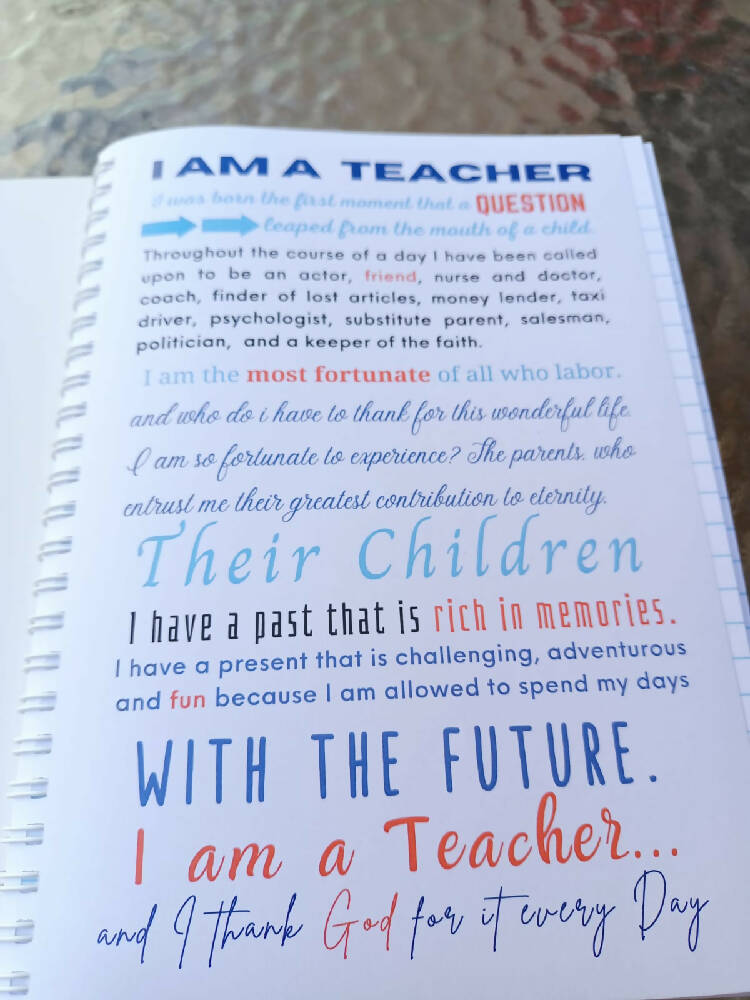 I AM A TEACHER
I was born the first moment that a QUESTION
leaped from the mouth of a child.
Throughout the course of a day I have been called
upon to be an actor, friend, nurse and doctor,
coach, finder of lost articles, money lender, taxi
driver, psychologist, substitute parent, salesman,
politician, and a keeper of the faith.
I am the most fortunate of all who labor.
and who do i have to thank for this wonderful life
I am so fortunate to experience? The parents. who
entrust me their greatest contribution to eternity.
Their Children
I have a past that is rich in memories.
I have a present that is challenging, adventurous
and fun because I am allowed to spend my days
WITH THE FUTURE.
I am a Teacher...
and I thank God for it every Day